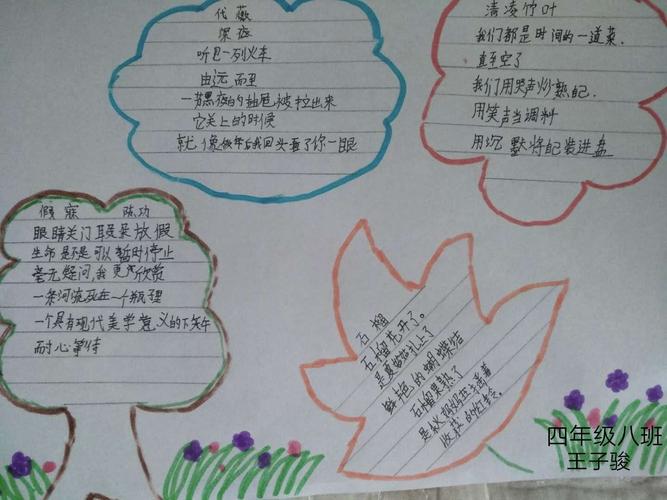 代薇
黑夜
听见一列火车
由远而至
一节黑夜的抽屉被拉出来
它关上的时候
就像做年后我回头看了你一眼
清凌竹叶
我们都是时间的一道菜.
直至空了
我们用哭声炒熟自己.
用笑声当调料
用沉默将自己装进盘
假寐 陈功
眼睛关门耳朵放假
生命是不是可以暂时停止
毫无疑问,我更欣赏
一条河流死在一个瓶里
一个具有现代美学意义的下午
耐心等待
石榴
石榴花开了。
是夏姑娘扎上了
鲜艳的蝴蝶结
石榴果熟了
是秋妈妈在
收获的红
四年级八班
王子骏